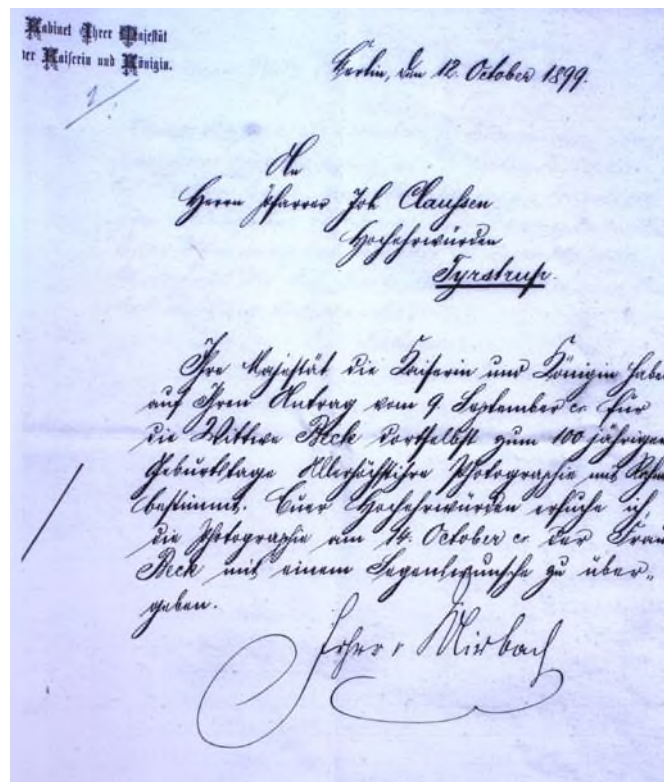 Kabinet Ihrer Majestät
der Kaiserin und Königin.
Berlin, den 12. October 1899.
An
Herrn Pfarrer Joh. Claussen
Hochehrwürden
Tyrstrup.
Ihre Majestät die Kaiserin und Königin haben
auf Ihren Antrag vom 9. September cr. für
die Wittwe Beck dortselbst zum 100 jährigen
Geburtstage Allerhöchstihre Photographie mit Rahmen
bestimmt. Euer Hochehrwürden ersuche ich,
die Photographie am 14. October cr. der Frau
Beck mit einem Segenswunsche zu über-
geben.
Frhr. v. Mirbach